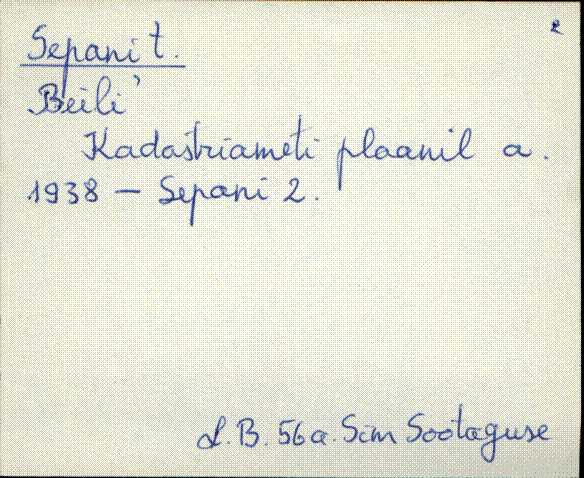 2
Sepani t.
Beili'
Kadastriameti plaanil a.
1938 – Sepani 2.
L.B. 56a. Sim Sootaguse